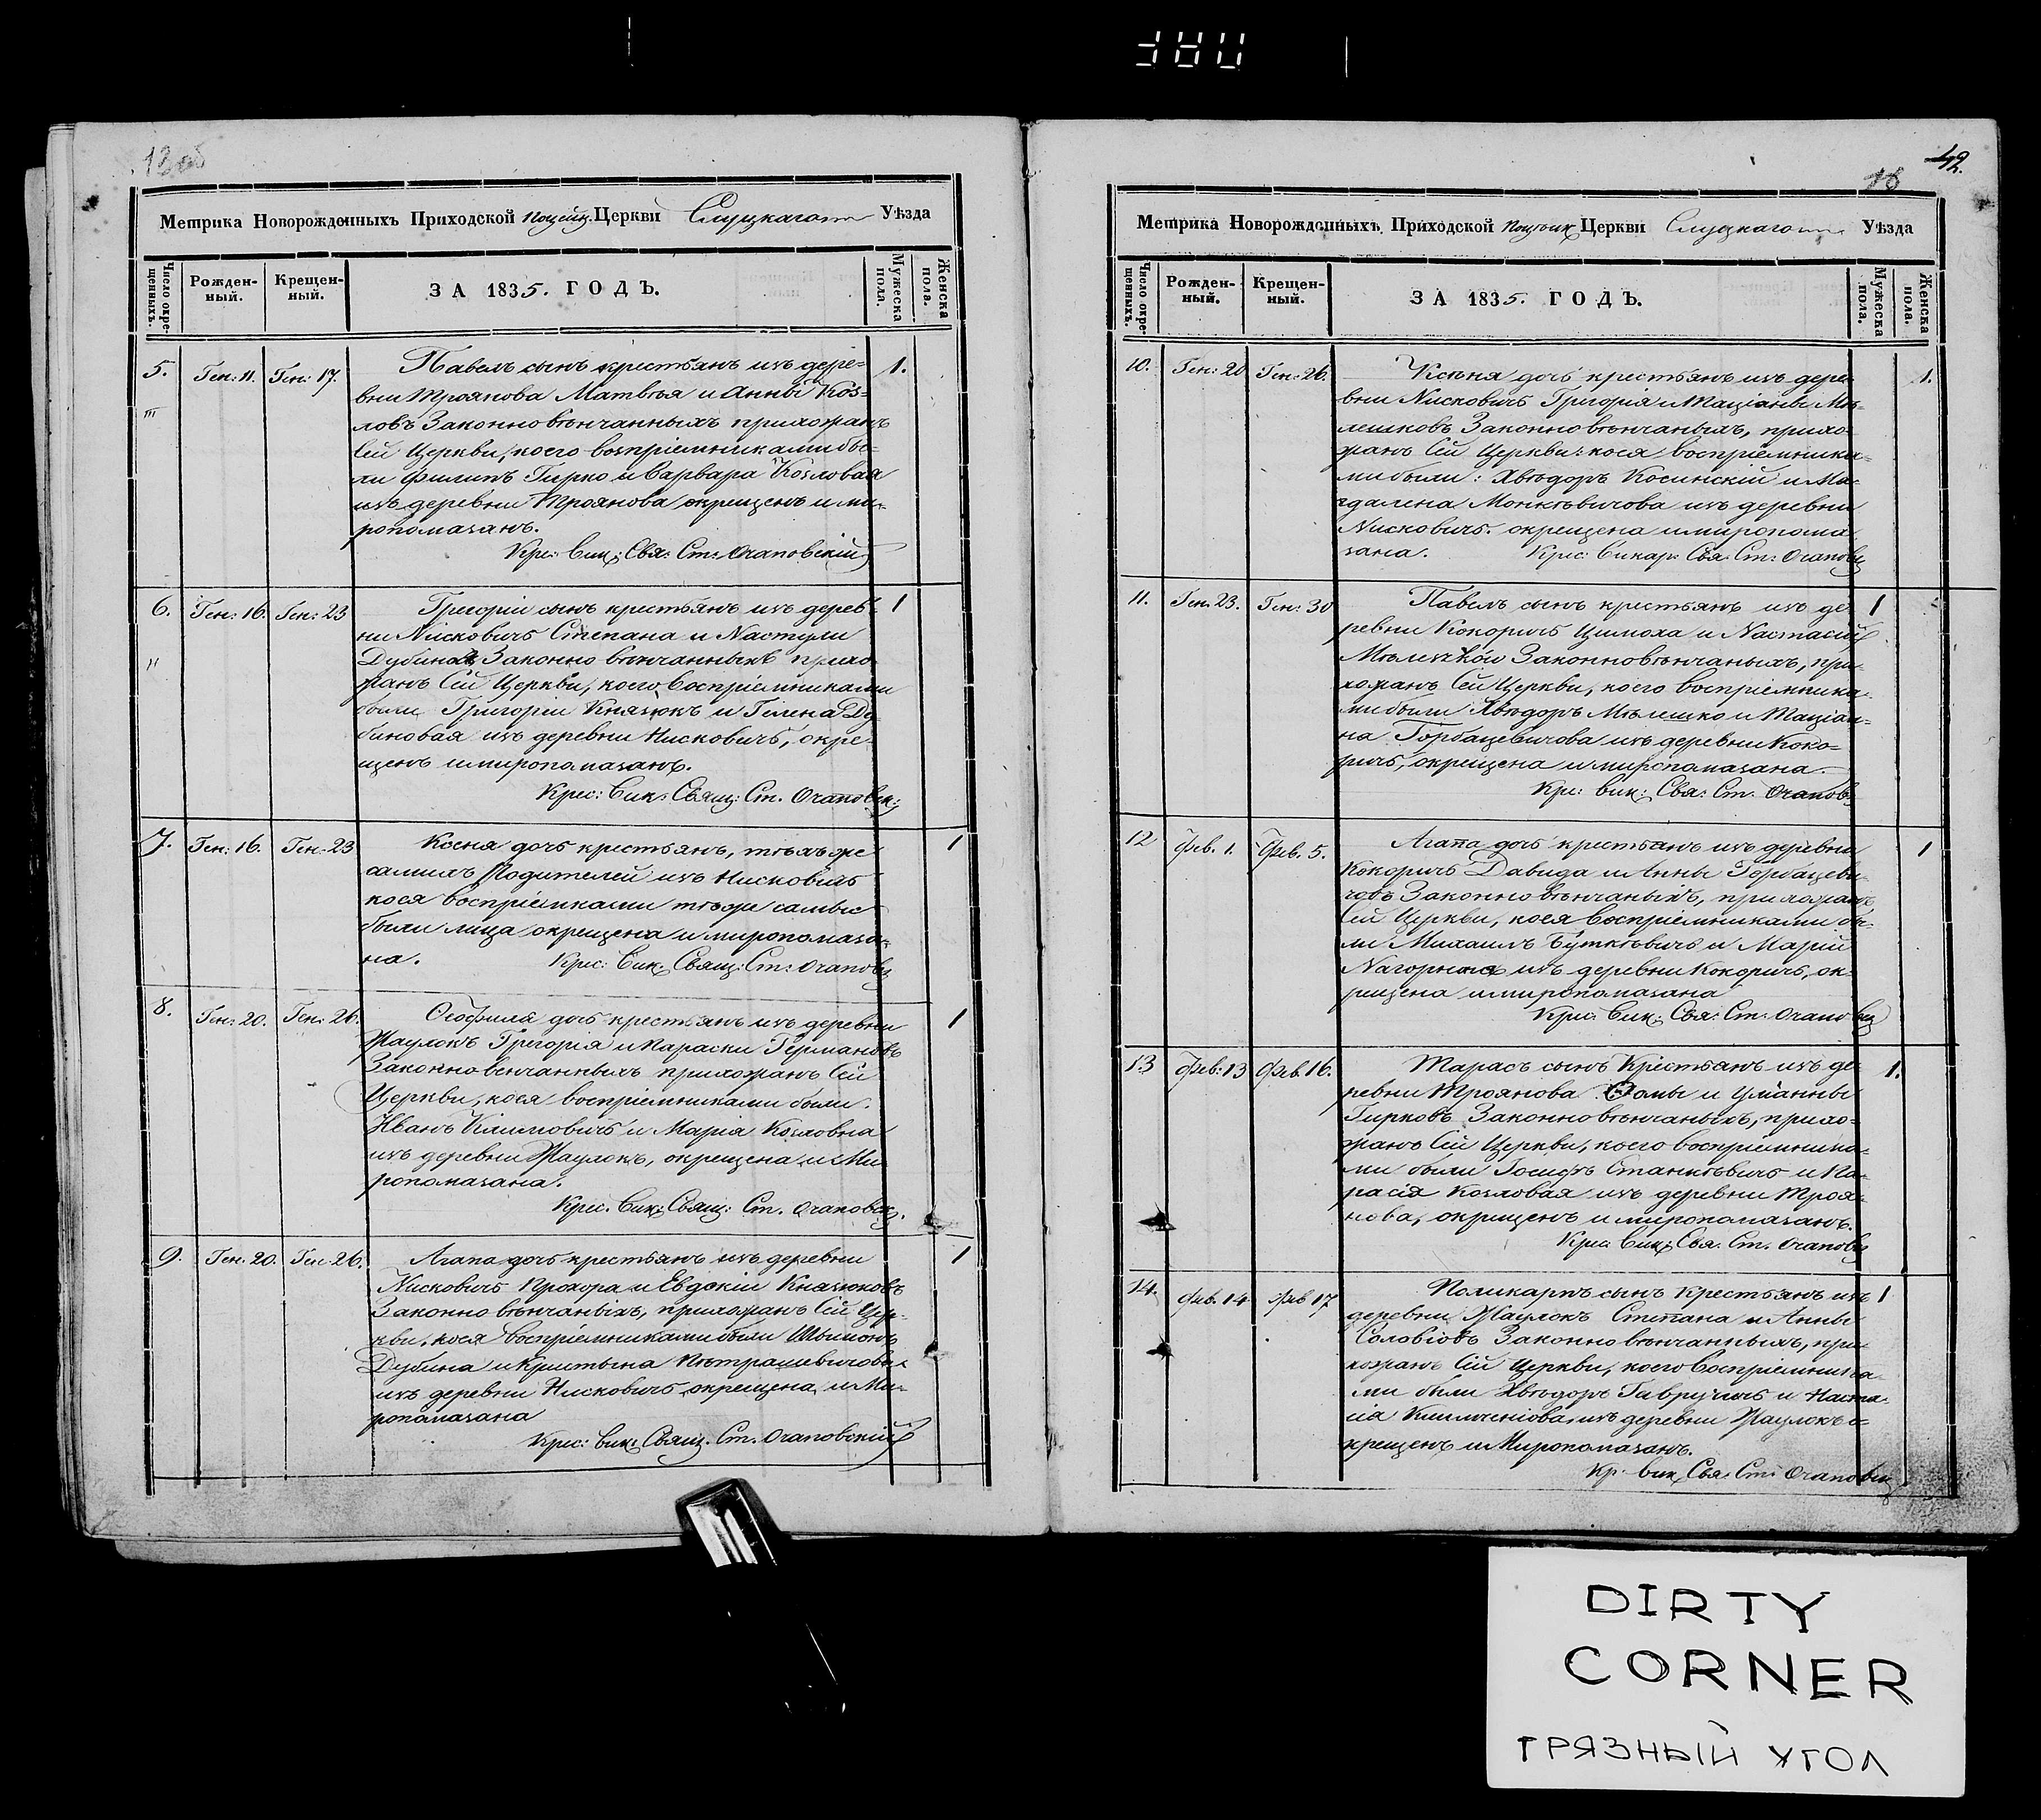 13 об
Метрика Новорожденныхъ Приходской Поцейк. Церкви Слуцкаго Уѣзда
Число окрещенныхъ. Рожденный. Крещенный. ЗА 1835. ГОДЪ. Мужеска пола. Женска пола.
5. Ген: 11. Ген: 17. Павелъ сынъ крестьянъ изъ дере- 1.
вни Троянова Матвѣя и Анны Коз-
ловъ Законновѣнчанныхъ прихожанъ
Сей Церкви, коего воспріемниками бы-
ли Филипъ Гирко и Варвара Козловая
изъ деревни Троянова окрещенъ и ми-
ропомазанъ.
Кре: Вик: Свя: Ст: Очаповскій
6. Ген: 16. Ген: 23 Григорій сынъ крестьянъ изъ дерев- 1
ни Нисковичъ Степана и Настули
Дубинъ Законно вѣнчанныхъ прихо
жанъ Сей Церкви, коего Воспріемниками
были Григорій Князюкъ и Гелена Ду
биновая изъ деревни Нисковичъ, окре-
щенъ и миропомазанъ.
Крес: Вик: Свящ: Ст. Очаповск:
7. Ген: 16. Ген: 23 Ксеня дочь крестьянъ, тѣхъ же 1
самихъ Родителей изъ Нисковичъ
коея воспріемниками тѣже самые
были лица окрещена и миропомаза-
на. Крес: Вик. Свящ: Ст: Очаповс
8. Ген: 20. Ген: 26. Ѳеофиля дочь крестьянъ изъ деревни 1
Жаулокъ Григорія и Параски Германовъ
Законновенчанныхъ прихожанъ Сей
Церкви, коея воспріемниками были.
Иванъ Климовичъ и Марія Козловна
изъ деревни Жаулокъ, окрещена и Ми
ропомазана.
Крес. Вик: Свящ: Ст. Очаповск.
9. Ген: 20. Ген: 26. Агапа дочь крестьянъ изъ деревни 1
Нисковичъ Прохора и Евдокіи Князюковъ
Законно вѣнчаныхъ, прихожанъ Сей Цер-
кви, коея Воспріемниками были Шымонъ
Дубина и Крыстына Пѣтрашевичовы
изъ деревни Нисковичъ, окрещена и Ми-
ропомазана
Крес: вик: Свящ. Ст. Очаповскій
42.
Метрика Новорожденныхъ Приходской Поцѣйк Церкви Слуцкаго Уѣзда
Число окрещенныхъ. Рожденный. Крещенный. ЗА 1835. ГОДЪ. Мужеска пола. Женска пола.
10. Ген: 20 Ген: 26. Ксѣня дочь крестьянъ изъ дере 1.
вни Нисковичъ Григорія и Тацыаны Мѣ-
лешковъ Законно вѣнчаныхъ, прихо
жанъ Сей Церкви: коея воспріемника-
ми были: Хвѣдоръ Косинскій и Ма-
гдалена Монкѣвичова изъ деревни
Нисковичъ. окрещена и миропома
зана. Крес: Викар: Свя: Ст: Очаповс
11. Ген. 23. Ген: 30 Павелъ сынъ крестьянъ изъ де 1
ревни Кокоричъ Цимоха и Настасіи
Мѣлешкой Законновѣнчаныхъ, при-
хожанъ Сей Церкви, коего воспріемника-
ми были Хвѣдоръ Мѣлешко и Таціан-
на Горбацевичова изъ деревни Коко-
ричъ, окрещена и миропомазана.
Кре: вик: Свя: Ст. Очапов
12 Фев. 1. Фев. 5. Агапа дочь крестьянъ изъ деревни 1
Кокоричъ Давида и Анны Горбацеви-
човъ Законновѣнчаныхъ, прихожанъ
Сей Церкви, коея воспріемниками бы-
ли Михаилъ Буткѣвичъ и Марія
Нагорная изъ деревни Кокоричъ, ок-
рещена и миропомазана
Крес: Вик: Свя: Ст: Очаповск
13 Фев: 13 Фев. 16. Тарасъ сынъ Крестьянъ изъ де- 1.
ревни Троянова Ѳомы и Ульянны
Гирковъ Законновѣнчаныхъ, прихо-
жанъ Сей Церкви, коего воспріемника-
ми были Іосифъ Станкѣвичъ и Па-
расія Козловая изъ деревни Троя-
нова, окрещенъ и миропомазанъ.
Крес. Вик: Свя. Ст. Очаповс
14. Фев. 14 Фев 17 Поликарпъ сынъ Крестьянъ изъ 1
деревни Жаулокъ Степана и Анны
Соловіовъ Законно вѣнчанныхъ, при
хожанъ Сей Церкви, коего Воспріемника-
ми были Хвѣдоръ Гавручикъ и Наста-
сія изъ деревни Жаулокъ о-
крещенъ и Миропомазанъ.
Кр. вик, Свя. Ст: Очаповск
DIRTY
CORNER
ГРЯЗНЫЙ УГОЛ